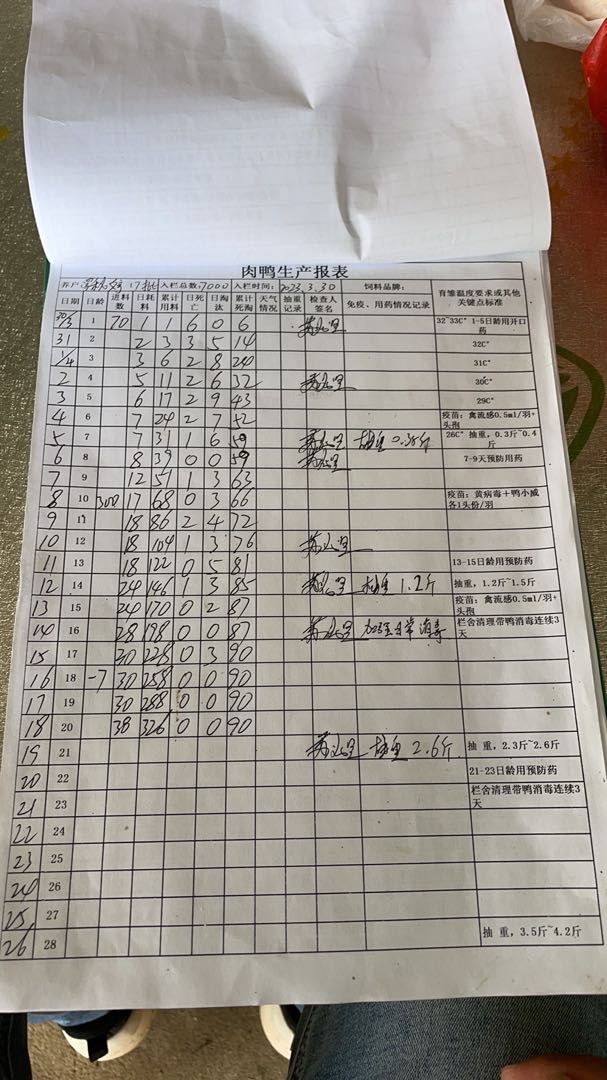 肉鸭生产报表
养户: 17批 入栏总数: 7000 入栏时间: 2023.3.30 饲料品牌: 育雏温度要求或其他关键点标准
日期 日龄 进料数 日耗料 累计用料 日死亡 日淘汰 累计死淘 天气情况 抽重记录 检查人签名 免疫、用药情况记录
30/3 1 70 1 1 6 0 6 32~33C° 1-5日龄用开口药
31 2 2 3 3 5 14 32C°
1/4 3 3 6 2 8 24 31C°
2 4 5 11 2 6 32 30C°
3 5 6 17 2 9 43 29C°
4 6 7 24 2 7 52 疫苗：禽流感0.5ml/羽+头孢
5 7 7 31 1 6 59 抽重 0.35斤 26C° 抽重，0.3斤~0.4斤
6 8 8 39 0 0 59 7-9天预防用药
7 9 12 51 1 3 63
8 10 300 17 68 0 3 66 疫苗：黄病毒+鸭小威各1头份/羽
9 11 18 86 2 4 72
10 12 18 104 1 3 76
11 13 18 122 0 5 81 13-15日龄用预防药
12 14 24 146 1 3 85 抽重 1.2斤 抽重，1.2斤~1.5斤
13 15 24 170 0 2 87 疫苗：禽流感0.5ml/羽+头孢
14 16 28 198 0 0 87 加强日常消毒 栏舍清理带鸭消毒连续3天
15 17 30 228 0 3 90
16 18 -7 30 258 0 0 90
17 19 30 288 0 0 90
18 20 38 326 0 0 90
19 21 抽重 2.6斤 抽 重，2.3斤~2.6斤
20 22 21-23日龄用预防药
21 23 栏舍清理带鸭消毒连续3天
22 24
23 25
24 26
25 27
26 28 抽 重，3.5斤~4.2斤